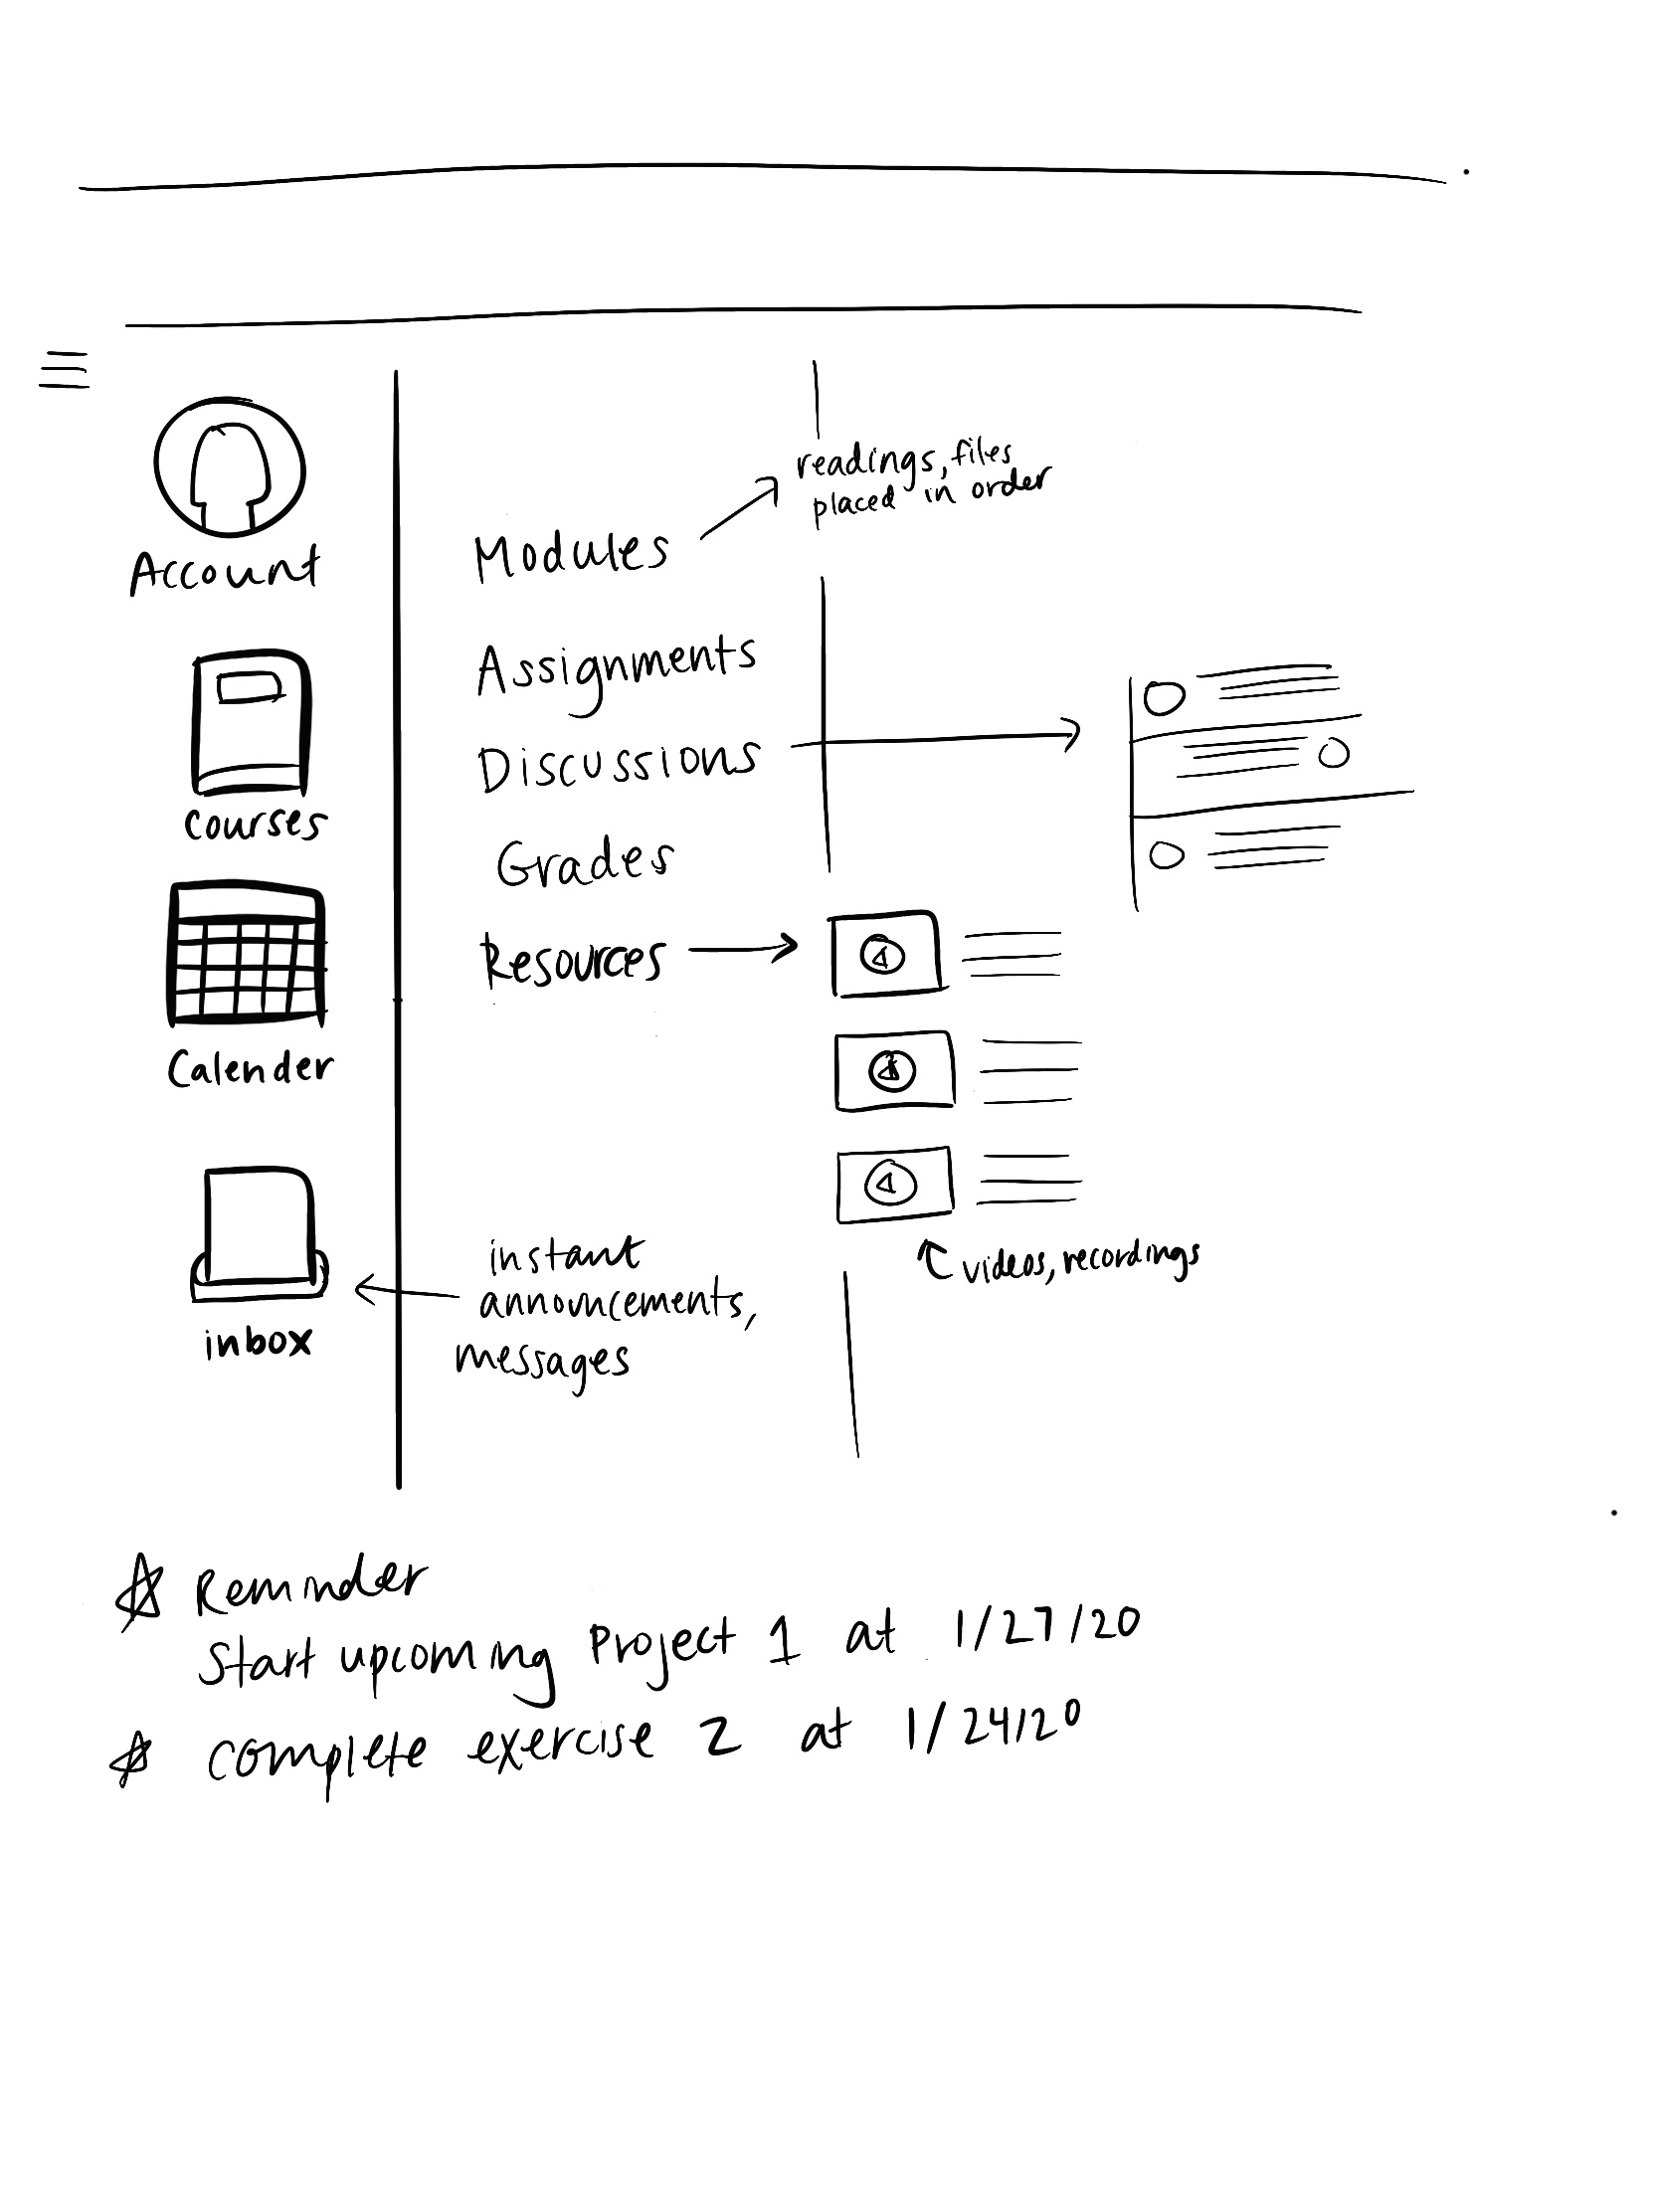 Account
Courses
Calender
inbox
Modules
readings, files
placed in order
Assignments
Discussions
Grades
Resources
videos, recordings
instant
announcements,
messages
Reminder
Start upcoming Project 1 at 1/27/20
complete exercise 2 at 1/24/20